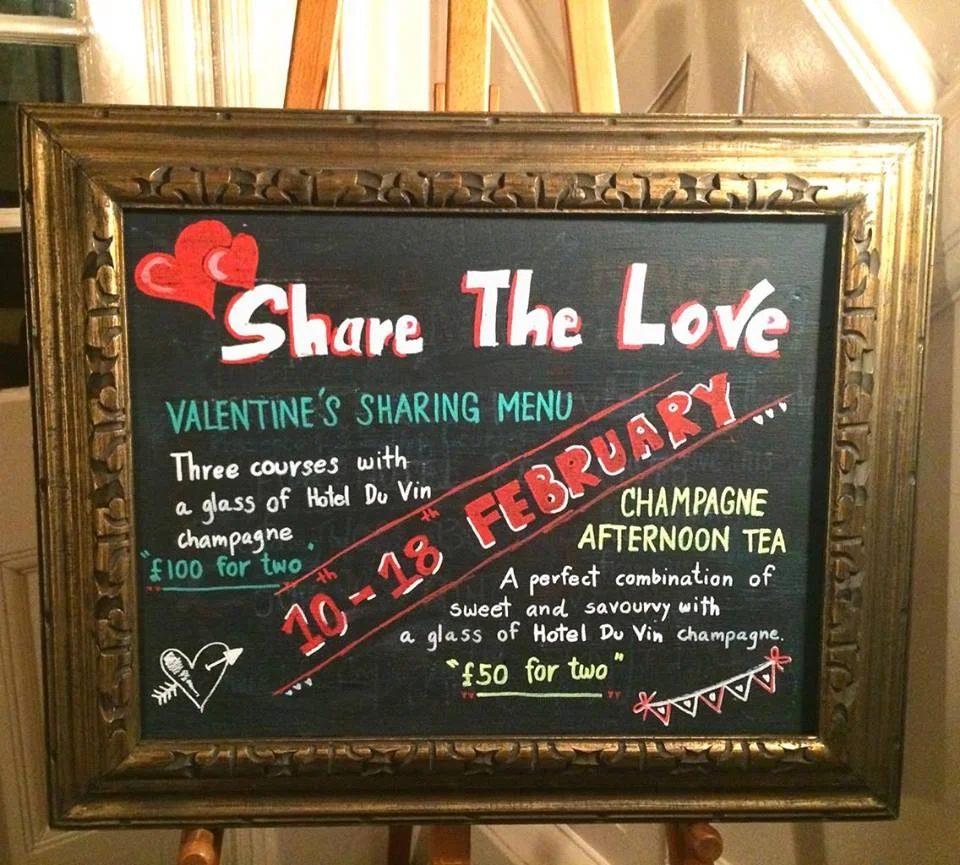 Share The Love
VALENTINE'S SHARING MENU
Three courses with
a glass of Hotel Du Vin
champagne
"£100 for two"
10th - 18th FEBRUARY
CHAMPAGNE
AFTERNOON TEA
A perfect combination of
sweet and savourvy with
a glass of Hotel Du Vin champagne.
"£50 for two"